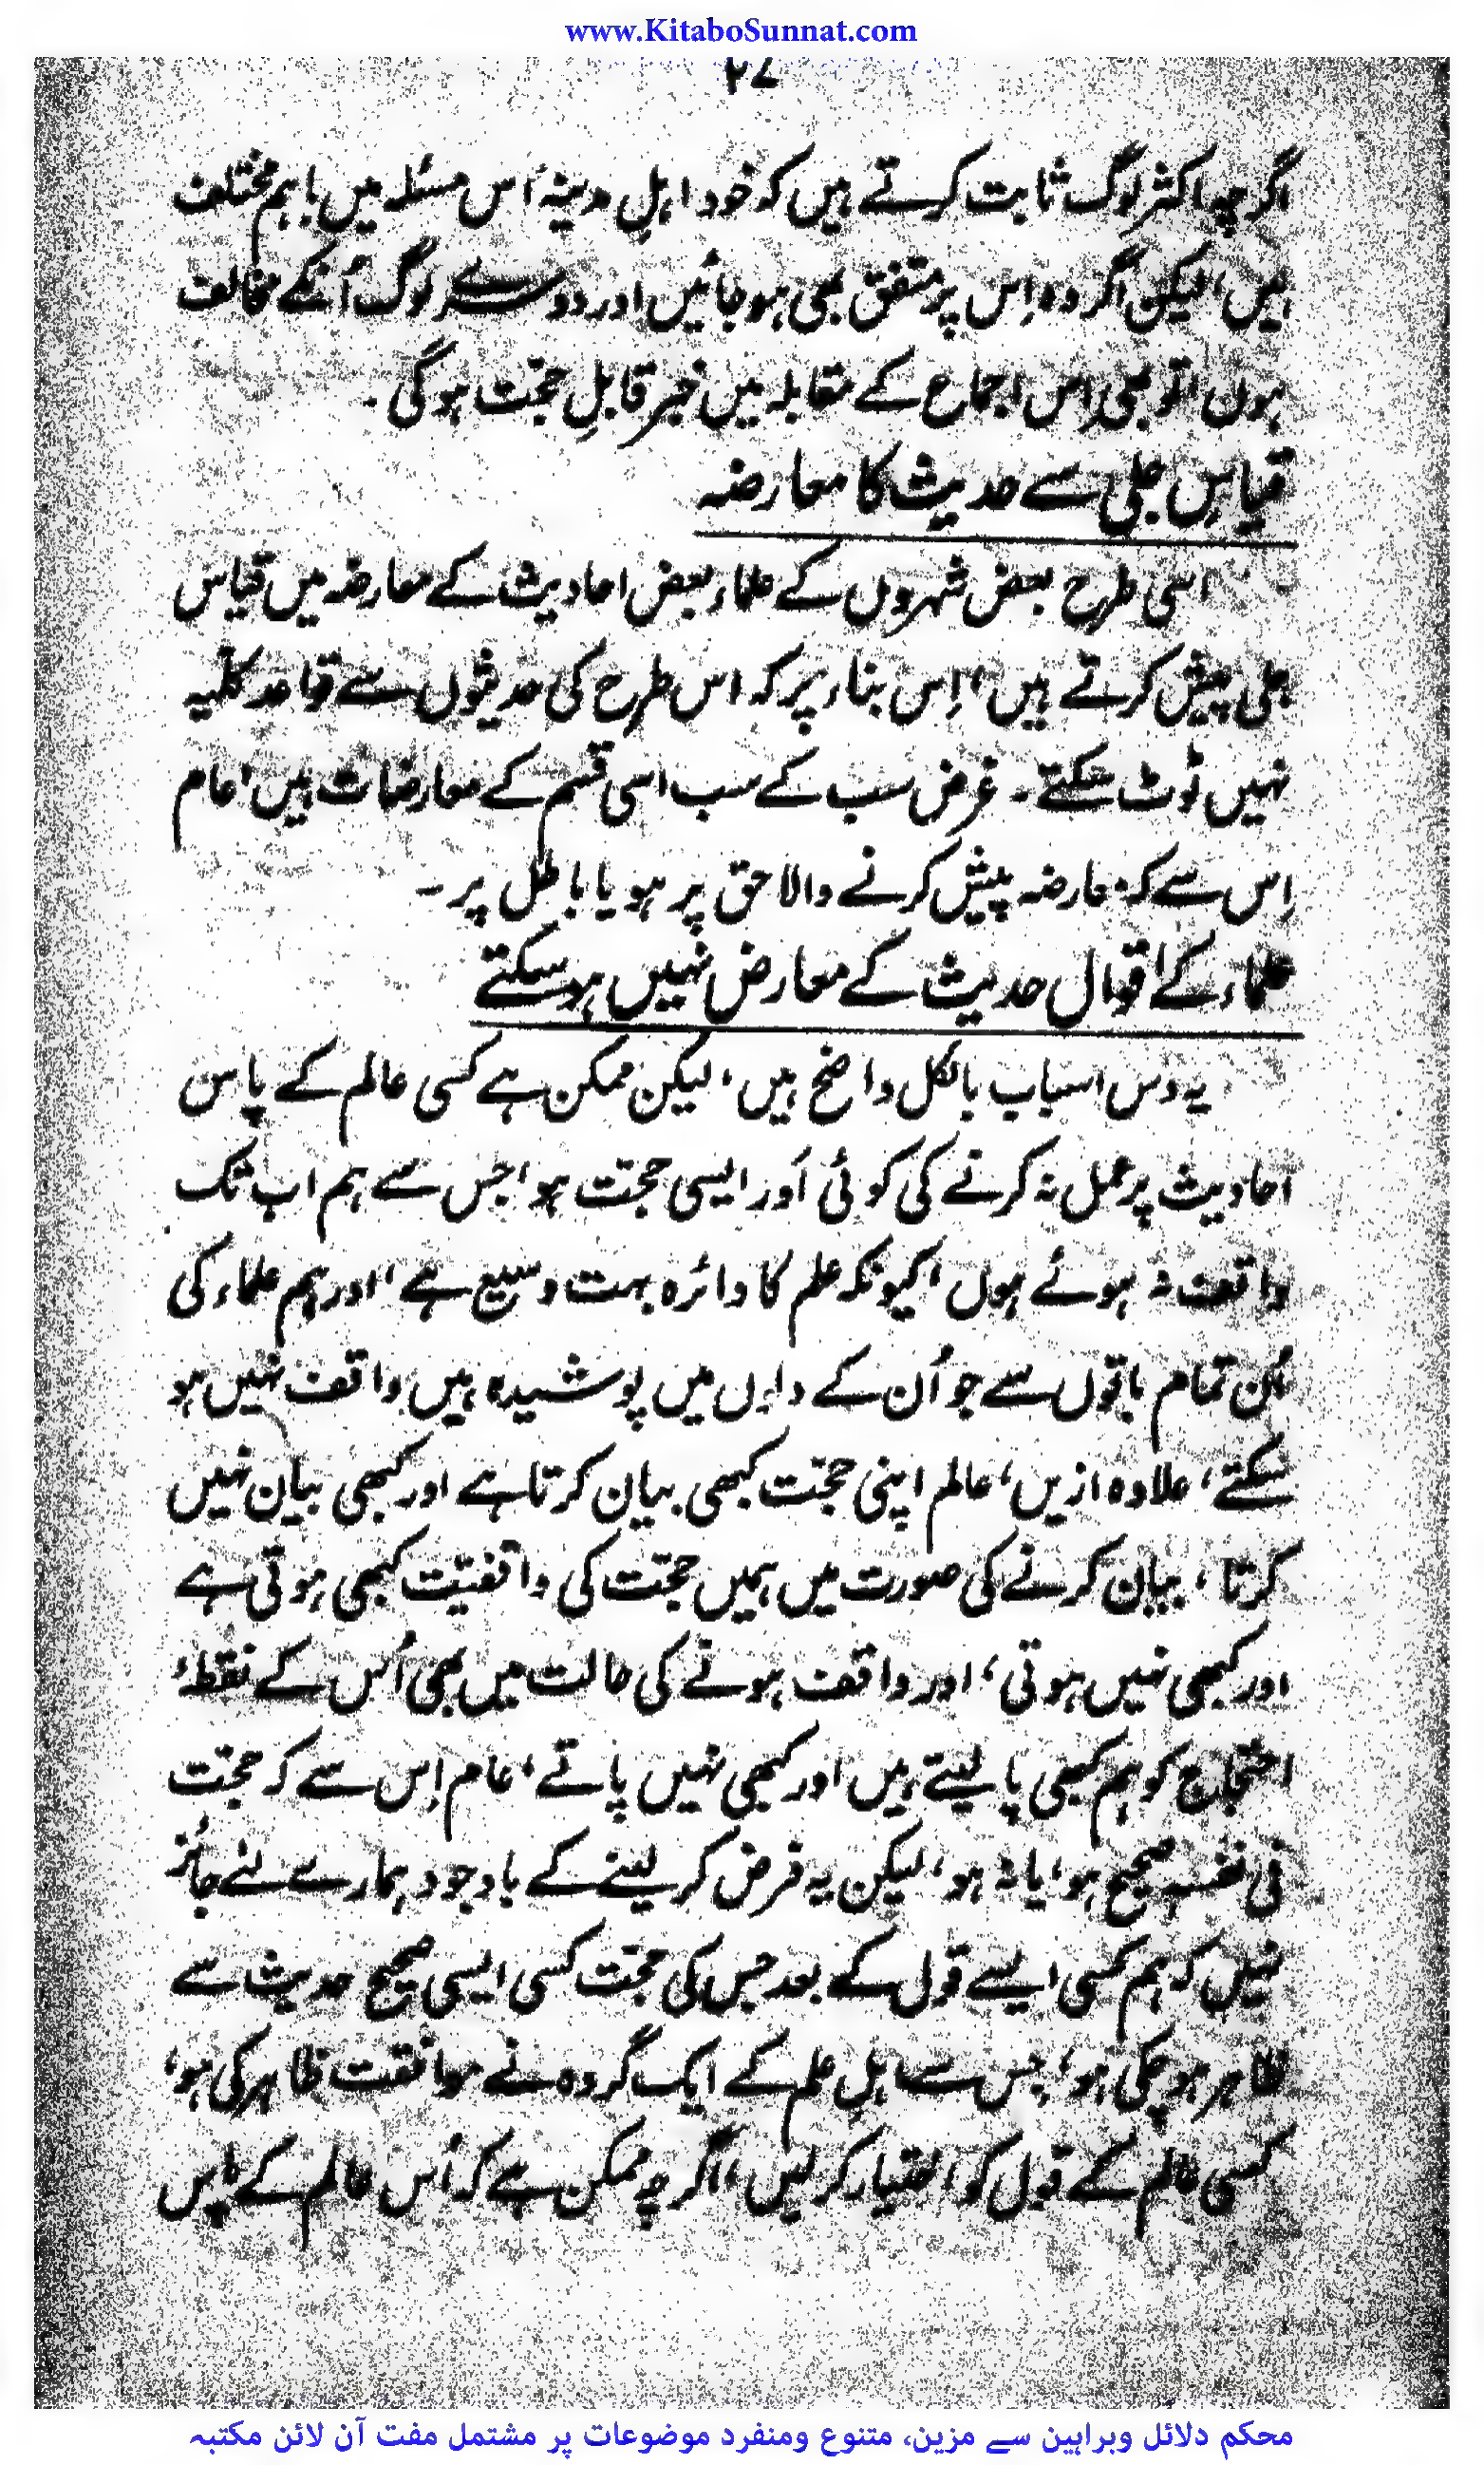 www.KitaboSunnat.com
۲۷
اگرچہ اکثر لوگ ثابت کرتے ہیں کہ خود اہلِ مدینہ اُس مسئلہ میں باہم مختلف
ہیں، لیکن اگر وہ اِس پر متفق بھی ہو جائیں اور دوسرے لوگ اُنکے مخالف
ہوں تو بھی اس اجماع کے مقابلہ میں خبر قابلِ حجت ہوگی۔
قیاسِ جلی سے حدیث کا معارضہ
اسی طرح بعض شہروں کے علماء بعض احادیث کے معارضہ میں قیاس
جلی پیش کرتے ہیں، اِس بناء پر کہ اس طرح کی حدیثوں سے قواعد کلّیہ
نہیں ٹوٹ سکتے۔ غرض سب کے سب اسی قسم کے معارضات ہیں، عام
اِس سے کہ معارضہ پیش کرنے والا حق پر ہو یا باطل پر۔
علماء کے اقوال حدیث کے معارض نہیں ہو سکتے
یہ دس اسباب بالکل واضح ہیں، لیکن ممکن ہے کسی عالم کے پاس
احادیث پر عمل نہ کرنے کی کوئی اَور ایسی حجّت ہو، جس سے ہم اب تک
واقف نہ ہوئے ہوں، کیونکہ علم کا دائرہ بہت وسیع ہے، اور ہم علماء کی
اُن تمام باتوں سے جو اُن کے دلوں میں پوشیدہ ہیں واقف نہیں ہو
سکتے، علاوہ ازیں، عالم اپنی حجّت کبھی بیان کرتا ہے اور کبھی بیان نہیں
کرتا، بیان کرنے کی صورت میں ہمیں حجّت کی واقفیّت کبھی ہوتی ہے
اور کبھی نہیں ہوتی، اور واقف ہونے کی حالت میں بھی اُس کے نقطۂ
احتجاج کو ہم کبھی پا لیتے ہیں اور کبھی نہیں پاتے، عام اِس سے کہ حجّت
فی نفسہ صحیح ہو، یا نہ ہو، لیکن یہ فرض کر لینے کے باوجود ہمارے لئے جائز
نہیں کہ ہم کسی ایسے قول کے بعد جس کی حجّت کسی ایسی صحیح حدیث سے
ظاہر ہو چکی ہو، جس سے اہلِ علم کے ایک گروہ نے موافقت ظاہر کی ہو،
کسی عالم کے قول کو اختیار کر لیں، اگرچہ ممکن ہے کہ اُس عالم کے پاس
محکم دلائل وبراہین سے مزین، متنوع ومنفرد موضوعات پر مشتمل مفت آن لائن مکتبہ